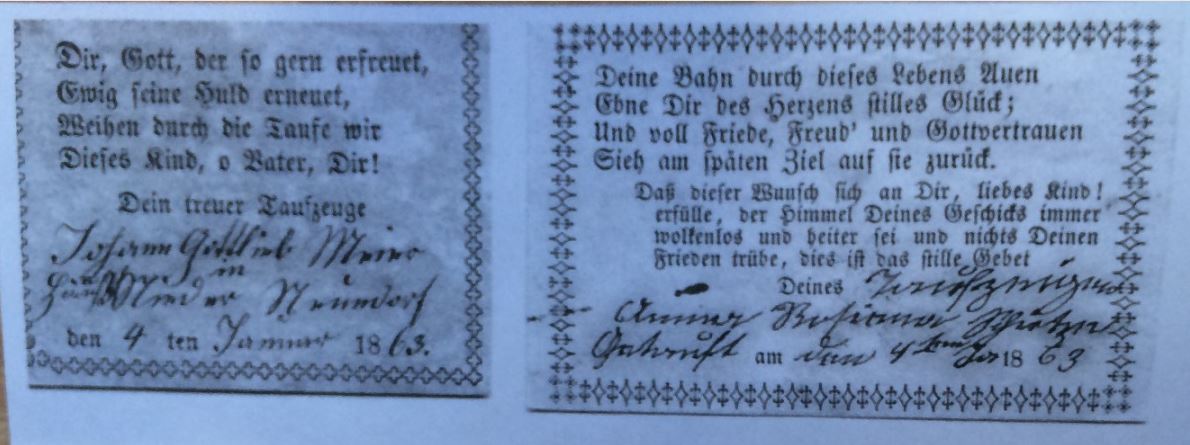 Dir, Gott, der so gern erfreuet,
Ewig seine Huld erneuet,
Weihen durch die Taufe wir
Dieses Kind, o Vater, Dir!
Dein treuer Taufzeuge
Johann Gottlieb Meier
in
Nieder Neundorf
den 4 ten Januar 1863.
Deine Bahn durch dieses Lebens Auen
Ebne Dir des Herzens stilles Glück;
Und voll Friede, Freud' und Gottvertrauen
Sieh am späten Ziel auf sie zurück.
Daß dieser Wunsch sich an Dir, liebes Kind!
erfülle, der Himmel Deines Geschicks immer
wolkenlos und heiter sei und nichts Deinen
Frieden trübe, dies ist das stille Gebet
Deines
Rosina
Getauft am den 4 1863